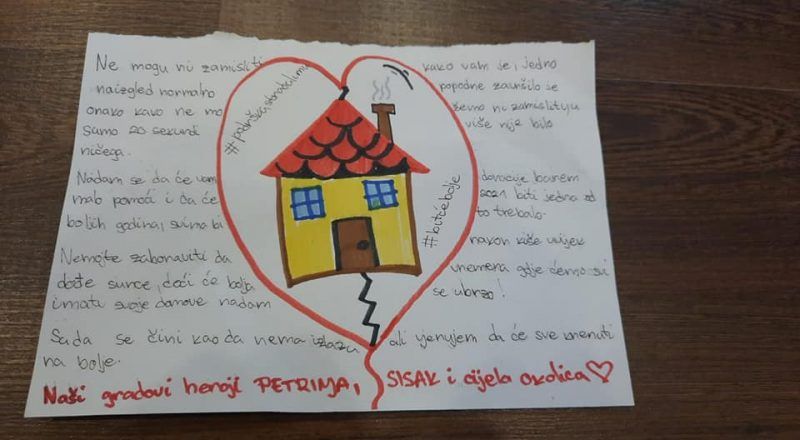 Ne mogu ni zamisliti kako vam je, jedno
naizgled normalno popodne završilo se
onako kako ne možemo ni zamisliti, u
samo 20 sekundi više nije bilo
ničega.
Nadam se da će vam donacije barem
malo pomoći i da će 2021 biti jedna od
boljih godina, svima bi to trebalo.
Nemojte zaboraviti da nakon kiše uvijek
dođe sunce, doći će bolja vremena gdje ćemo svi
imati svoje domove nadam se ubrzo!
Sada se čini kao da nema izlaza ali vjerujem da će sve krenuti
na bolje.
#podrškastradalima
#bitćebolje
Naši gradovi heroji PETRINJA, SISAK i cijela okolica♡